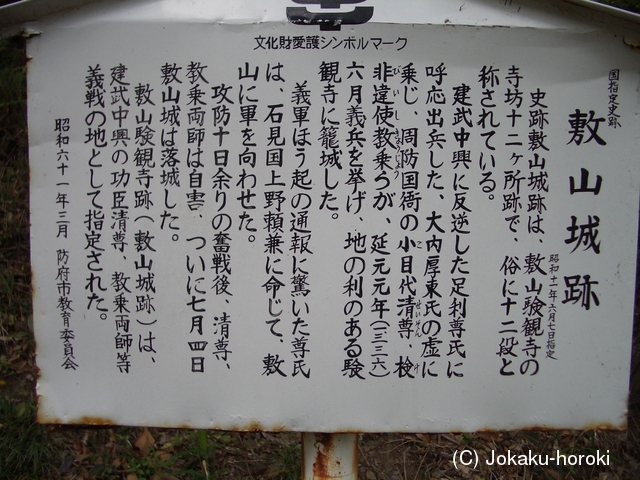 文化財愛護シンボルマーク
国指定史跡
敷山城跡
昭和十年六月七日指定
史跡敷山城跡は、敷山験観寺の
寺坊十二ヶ所跡で、俗に十二段と
称されている。
建武中興に反逆した足利尊氏に
呼応出兵した、大内厚東氏の虚に
乗じ、周防国衙の小目代清尊、検
非違使教乗らが、延元元年(一三三六)
六月義兵を挙げ、地の利のある験
観寺に籠城した。
義軍ほう起の通報に驚いた尊氏
は、石見国上野頼兼に命じて、敷
山に軍を向わせた。
攻防十日余りの奮戦後、清尊、
教乗両師は自害、ついに七月四日
敷山城は落城した。
敷山験観寺跡(敷山城跡)は、
建武中興の功臣清尊、教乗両師等
義戦の地として指定された。
昭和六十一年三月 防府市教育委員会
(C) Jokaku-horoki